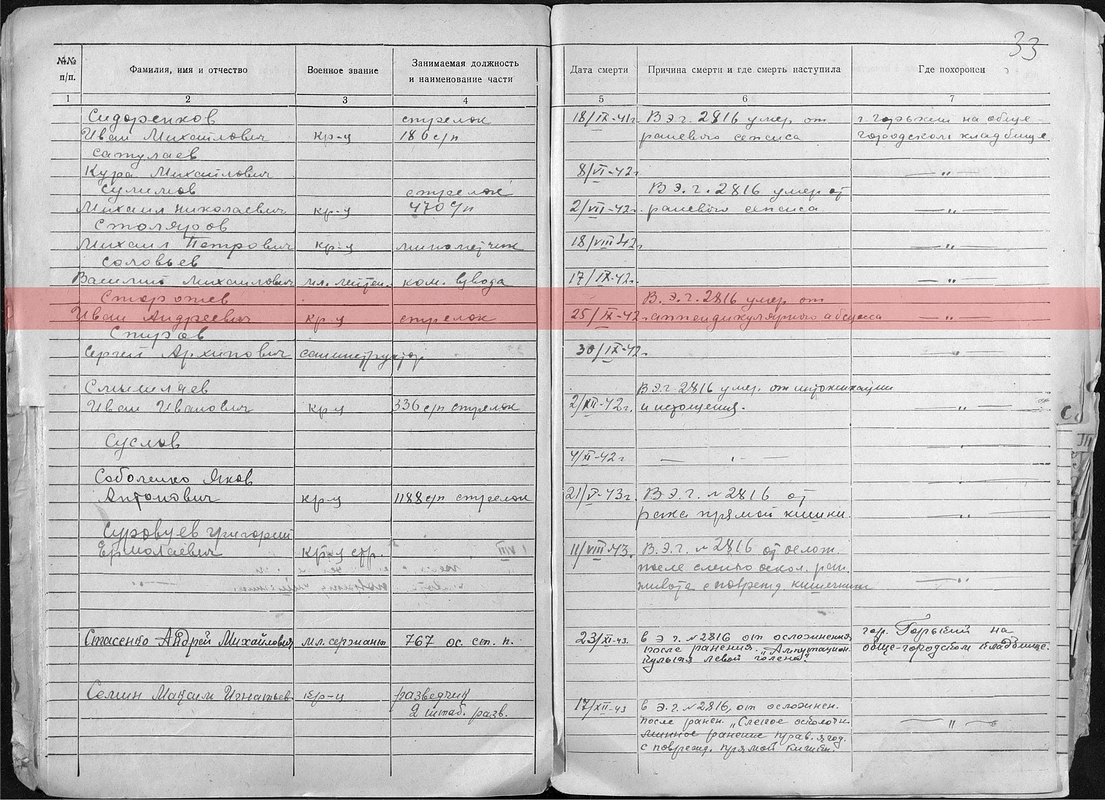 33
№№ п/п. Фамилия, имя и отчество Военное звание Занимаемая должность и наименование части Дата смерти Причина смерти и где смерть наступила Где похоронен
1 2 3 4 5 6 7
Сидоренков стрелок 18/IX-41г. В Э.г. 2816 умер от г. Горький на обще-
Иван Михайлович кр-ц 186 с/п раневого сепсиса городском кладбище
Сатулаев
Кура Михайлович 8/VI-42г. — " —
Сулимов стрелок В Э.г. 2816 умер от
Михаил Николаевич кр-ц 470 с/п 2/VII-42г. раневого сепсиса — " —
Столяров
Михаил Петрович кр-ц минометчик 18/VIII 42г. — " —
Соловьев
Василий Михайлович мл. лейтен. ком. взвода 17/IX-42г. — " —
Сторожев В. Э.г. 2816 умер от
Иван Андреевич кр-ц стрелок 25/IX-42г. аппендикулярного абсцесса — " —
Спиров
Сергей Архипович санинструктор 30/IX-42г. — " —
Смышлаев В Э.г 2816 умер. от интоксикации
Иван Иванович кр-ц 336 с/п стрелок 2/XII-42г. и истощения. — " —
Суслов
4/XI-42г — " — — " —
Соболенко Яков
Антонович кр-ц 1188 с/п стрелок 21/V-43г. В Э.г. №2816 от
рака прямой кишки. — " —
Суровцев Григорий
Ермолаевич кр-ц стр. 11/VIII-43. В Э.г. №2816 от ослож.
после слепо оскол. ран.
живота с поврежд кишечника — " —
Стасенко Андрей Михайлович мл. сержант 767 ос. ст. п. 23/XI-43. в Э г. №2816 от осложнения гор. Горький на
после ранения. "Ампутацион. обще-городском кладбище.
культя левой голени."
Семин Максим Игнатьев. кр-ц разведчик 17/XII-43 в Э.г. №2816, от осложнен.
2 штаб. разв. после ранен. "Слепое осколочн. — " —
минное ранение прав. ягод.
с поврежд. прямой кишки.